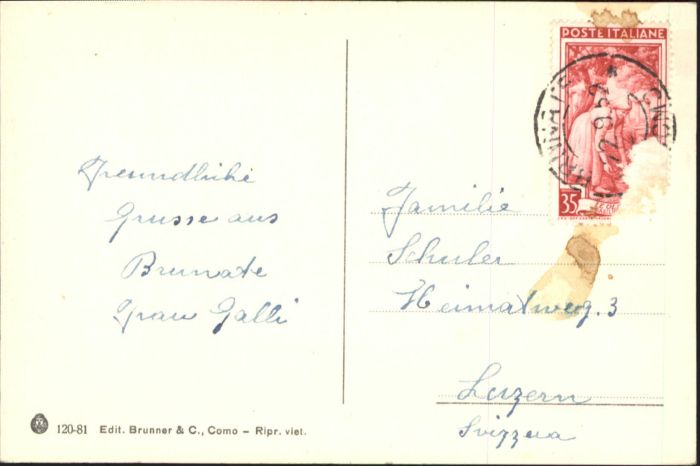 POSTE ITALIANE
35
BRUNATE
22.9.52
Freundliche
Grusse aus
Brunate
Frau Galli
Familie
Schuler
Heimatweg. 3
Luzern
Svizzera
120-81 Edit. Brunner & C., Como - Ripr. viet.